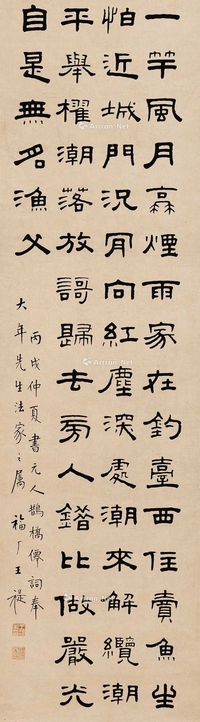 一竿風月蓑煙雨家在釣臺西住賣魚生
怕近城門況肯向紅塵深處潮來解纜潮
平舉櫂潮落放謌歸去旁人錯比做嚴光
自是無名漁父
丙戌仲夏書元人鵲橋僊詞奉
大年先生法家之屬 福厂王禔